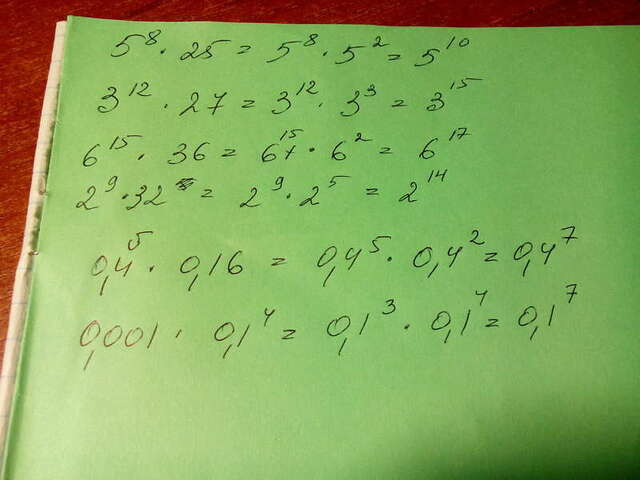 5⁸ · 25 = 5⁸ · 5² = 5¹⁰
3¹² · 27 = 3¹² · 3³ = 3¹⁵
6¹⁵ · 36 = 6¹⁵ · 6² = 6¹⁷
2⁹ · 32 = 2⁹ · 2⁵ = 2¹⁴
0,4⁵ · 0,16 = 0,4⁵ · 0,4² = 0,4⁷
0,001 · 0,1⁴ = 0,1³ · 0,1⁴ = 0,1⁷